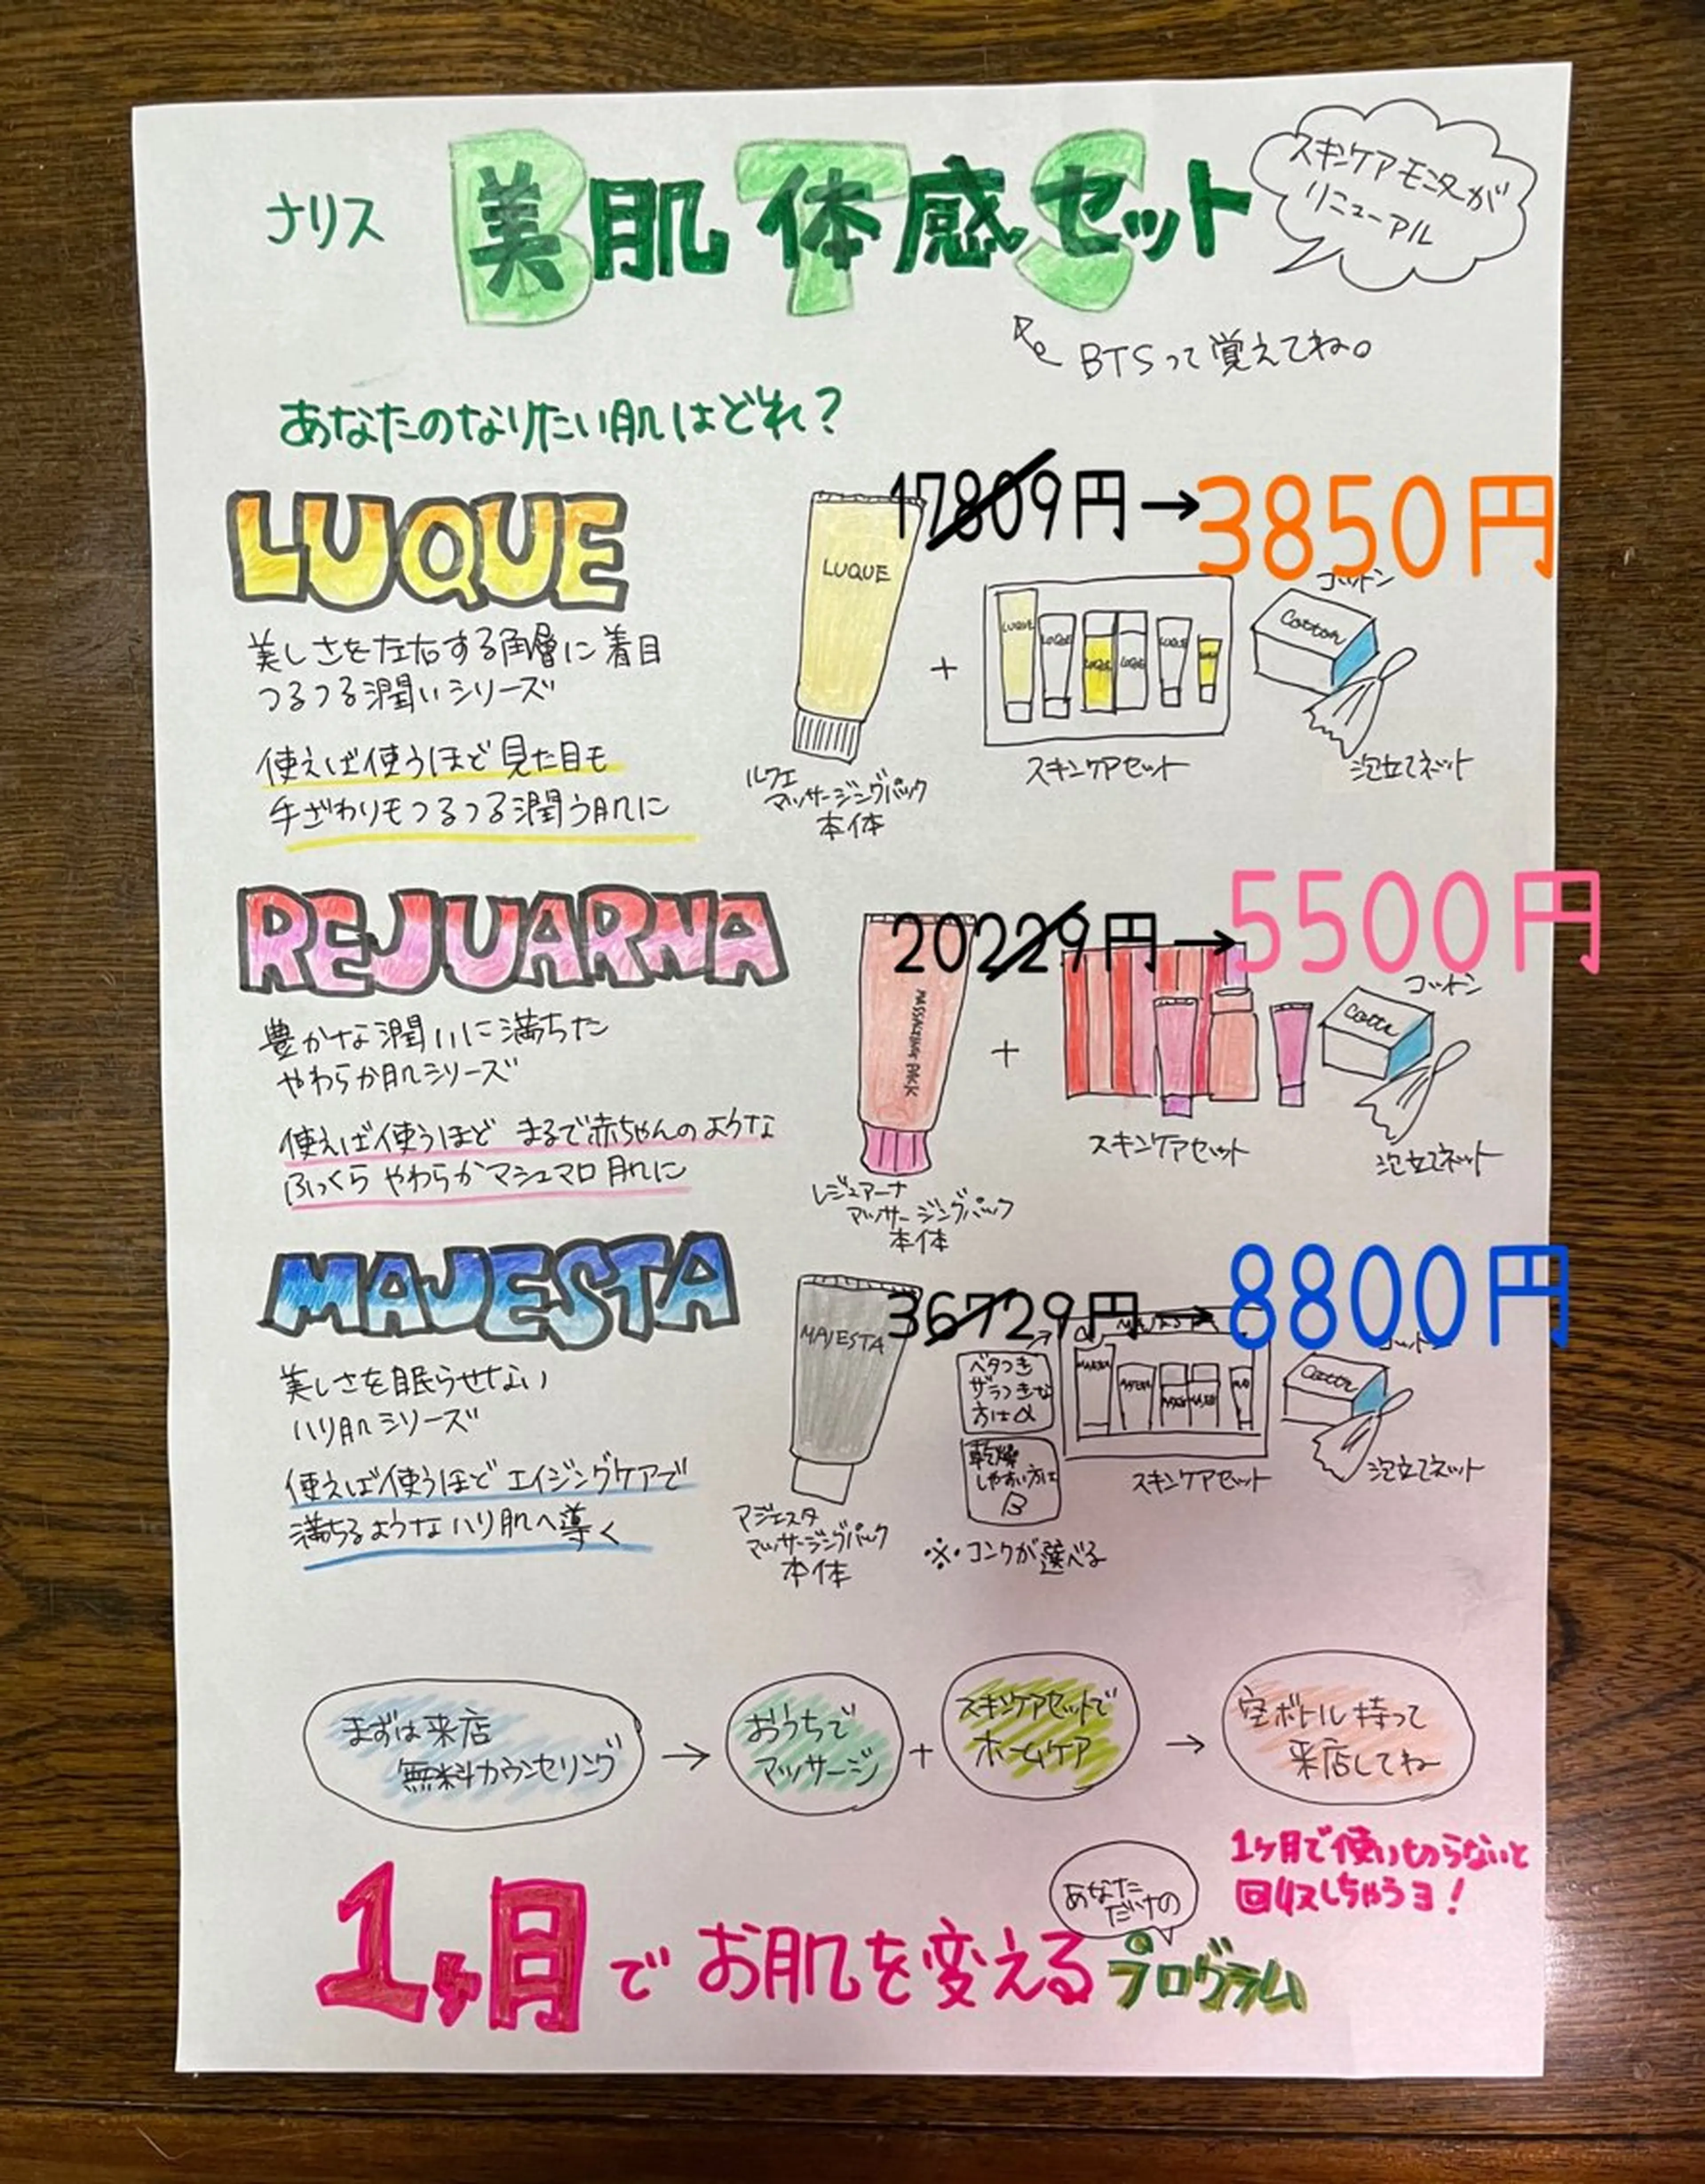 ナリス 美肌体感セット
BTS
スキンケアモニターが
リニューアル
BTSって覚えてね。
あなたのなりたい肌はどれ?
LUQUE
美しさを左右する角層に着目
つるつる潤いシリーズ
使えば使うほど見た目も
手ざわりもつるつる潤う肌に
17809円→3850円
LUQUE
+
LUQUE
LUQUE
LUQUE
LUQUE
LUQUE
コットン
Cotton
ルクエ
マッサージングパック
本体
スキンケアセット
泡立てネット
REJUARNA
豊かな潤いに満ちた
やわらか肌シリーズ
使えば使うほど まるで赤ちゃんのような
ふっくら やわらかマシュマロ肌に
20229円→5500円
MASSAGING PACK
+
コットン
レジュアーナ
マッサージングパック
本体
スキンケアセット
泡立てネット
MAJESTA
美しさを眠らせない
ハリ肌シリーズ
使えば使うほどエイジングケアで
満ちるようなハリ肌へ導く
36729円→8800円
MAJESTA
ベタつき
ザラつきな
方はα
乾燥
しやすい方は
β
MAJESTA
コットン
マジェスタ
マッサージングパック
本体
※コンクが選べる
スキンケアセット
泡立てネット
まずは来店
無料カウンセリング
→
おうちで
マッサージ
+
スキンケアセットで
ホームケア
→
空ボトル持って
来店してね
1ヶ月で使いきらないと
回収しちゃうヨ!
あなた
だけの
1ヶ月でお肌を変えるプログラム